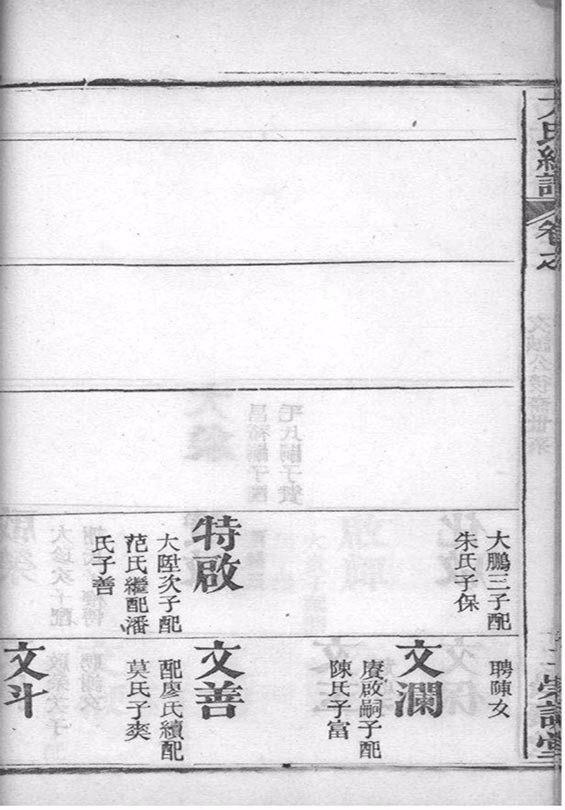 卷之
大鵬三子配
朱氏子保
特啟
大陞次子配
范氏繼配潘
氏子善
聘陳女
文瀾
賡啟嗣子配
陳氏子富
文善
配廖氏續配
莫氏子爽
文斗